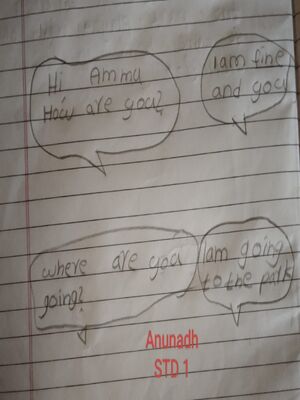 Hi Ammu
How are you?
I am fine
and you
where are you
going?
I am going
to the park
Anunadh
STD 1